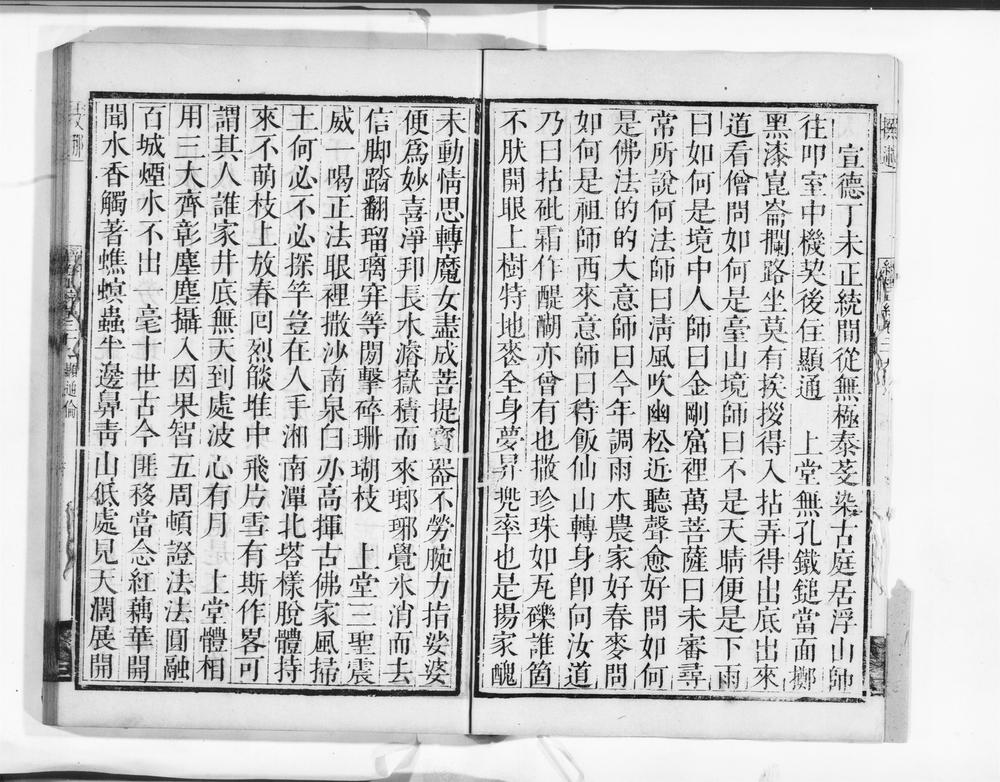 宣德丁未正統間從無極泰芟染古庭居浮山師
往叩室中機契後住顯通　上堂無孔鐵鎚當面擲
黑漆崑崙攔路坐莫有挨拶得入拈弄得出底出來
道看僧問如何是臺山境師曰不是天晴便是下雨
曰如何是境中人師曰金剛窟裡萬菩薩曰未審尋
常所說何法師曰清風吹幽松近聽聲愈好問如何
是佛法的的大意師曰今年調雨水農家好春麥問
如何是祖師西來意師曰待飯仙山轉身卽向汝道
乃曰拈砒霜作醍醐亦曾有也撒珍珠如瓦礫誰箇
不肰開眼上樹特地來全身夢昇兠率也是揚家醜
未動情思轉魔女盡成菩提寶器不勞腕力指娑婆
便爲妙喜淨刧長水濬嶽積而來瑯琊覺氷消而去
信脚踏翻瑠璃穽等閒擊碎珊瑚枝　上堂三聖震
威一喝正法眼裡撒沙南泉白刃高揮古佛家風掃
土何必不必探竿豈在人手湘南潭北塔樣脫體持
來不萌枝上放春回烈燄堆中飛片雪有斯作畧可
謂其人誰家井底無天到處波心有月　上堂體相
用三大齊彰塵塵攝入因果智五周頓證法法圓融
百城煙水不出一毫十世古今匪移當念紅藕華開
聞水香觸著蟭螟蟲半邊鼻靑山低處見天濶展開